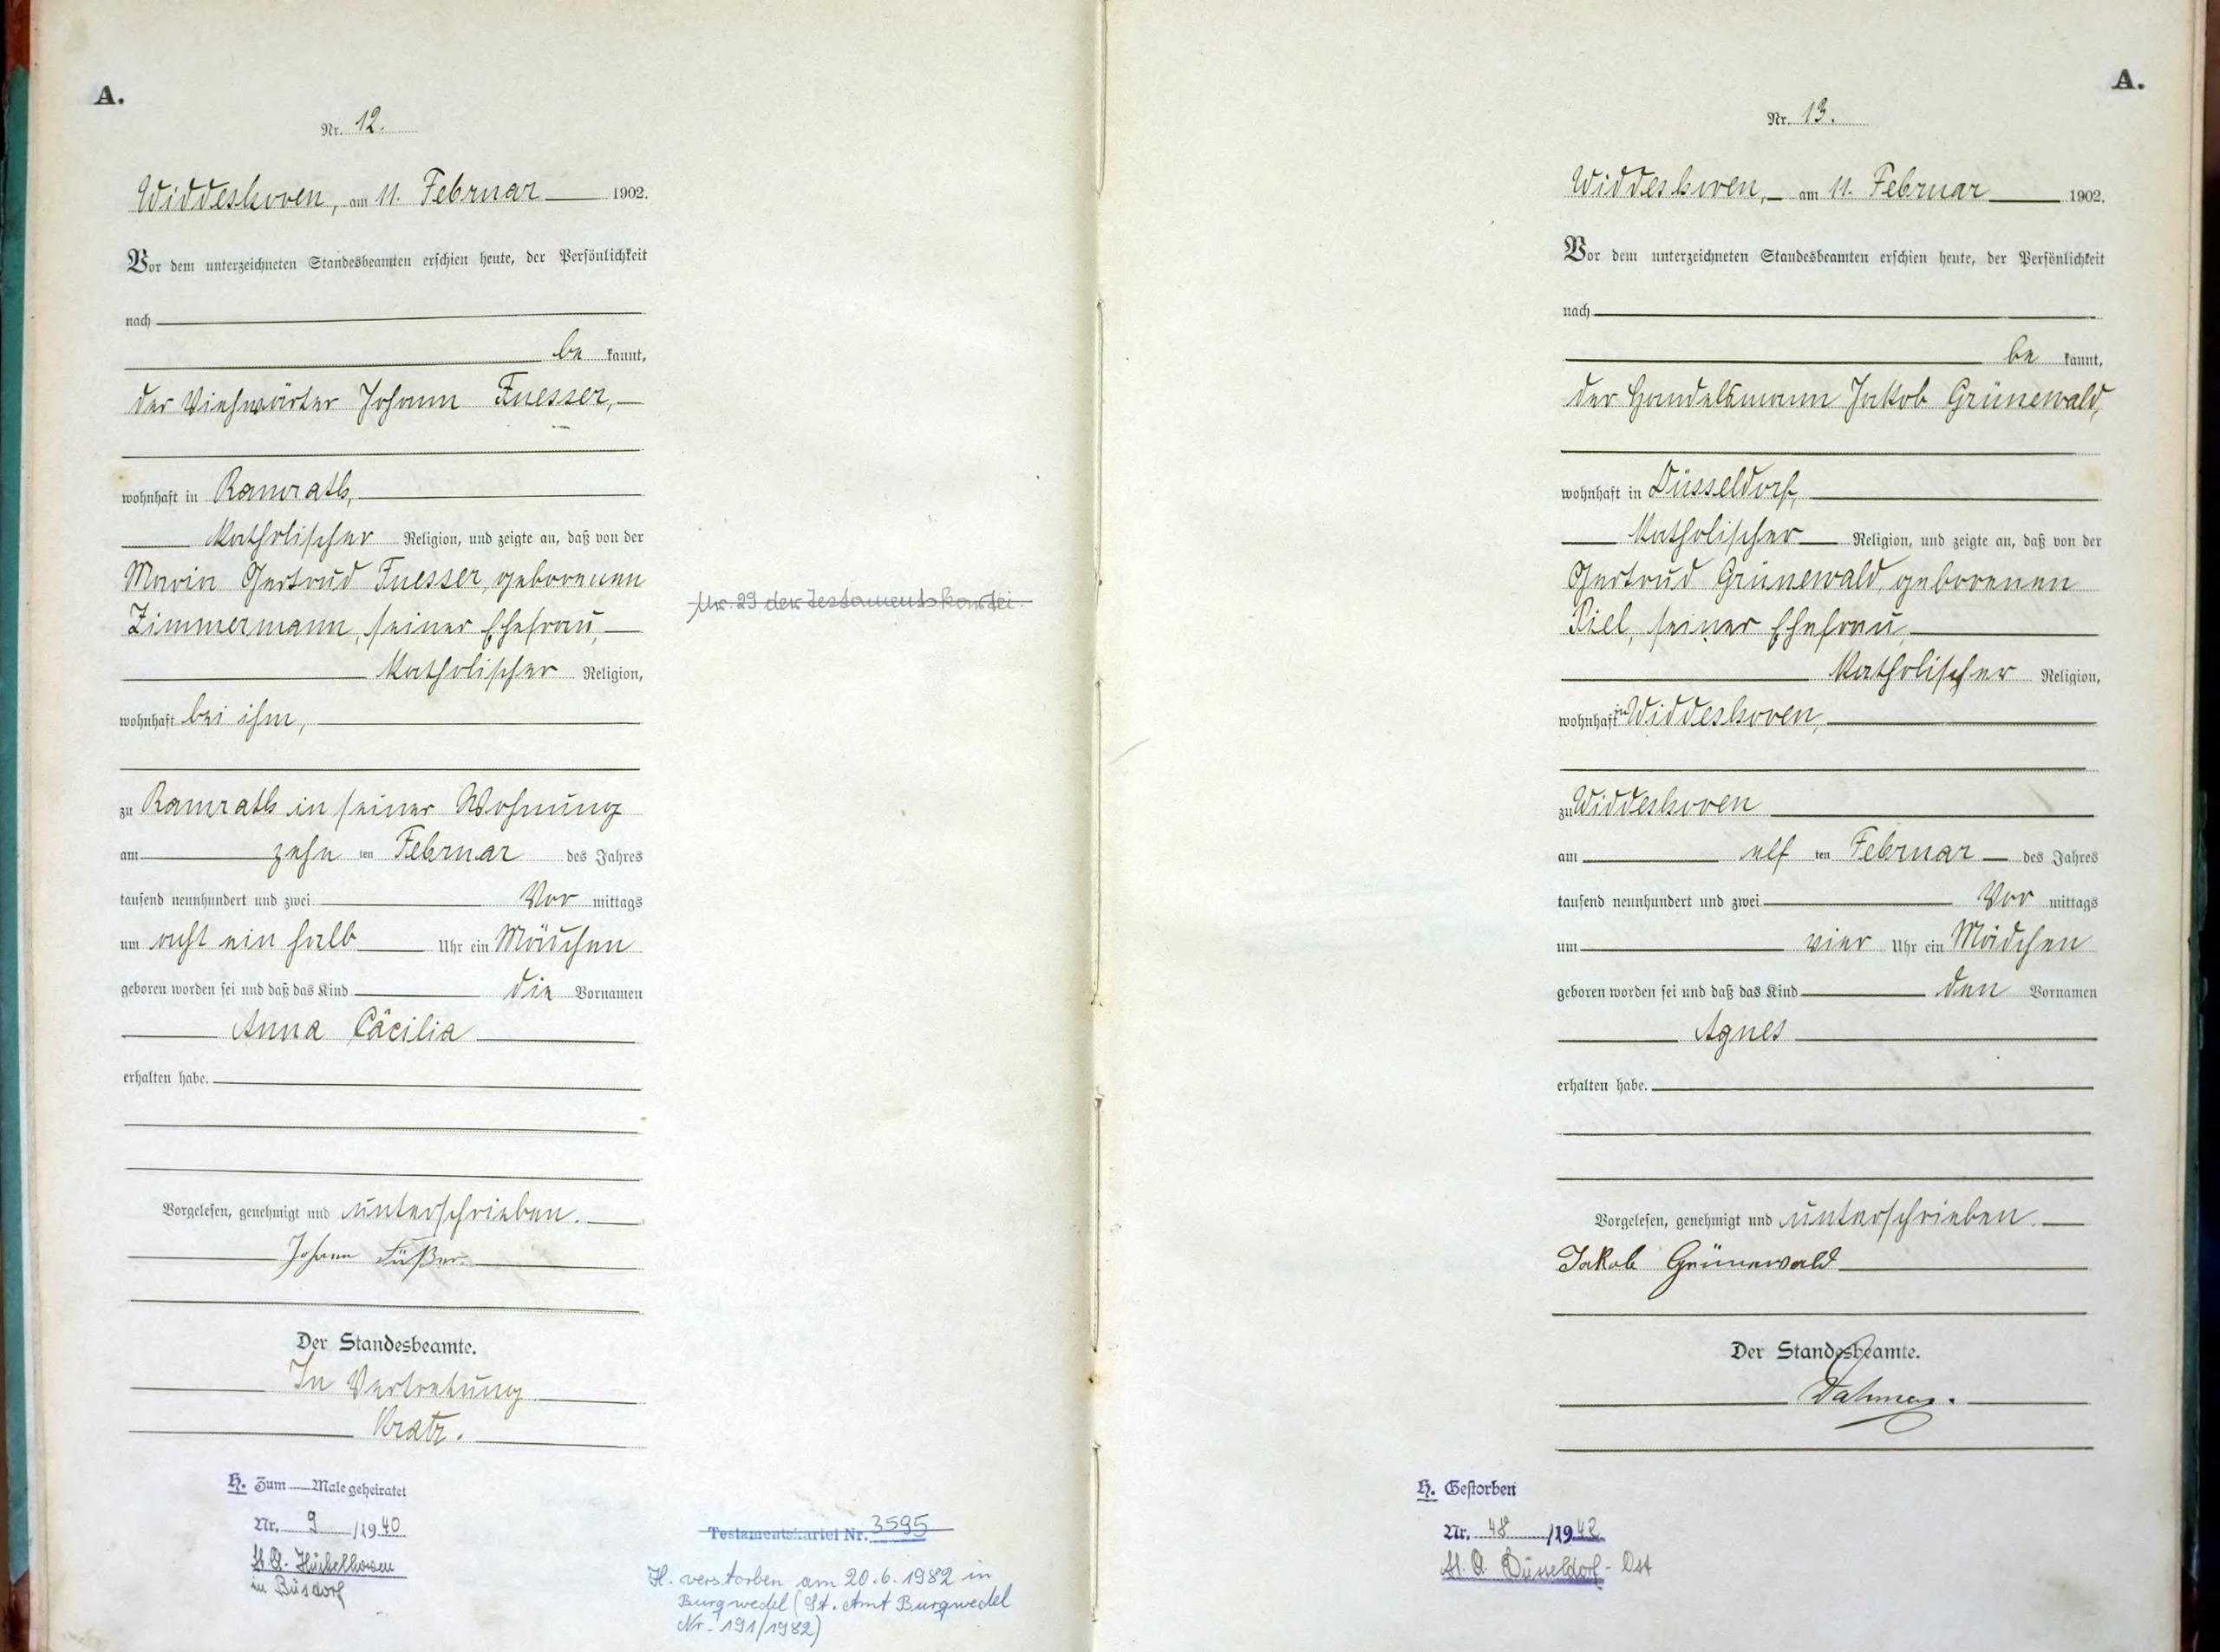 A.
Nr. 12.
Widdeshoven, am 11. Februar 1902.
Vor dem unterzeichneten Standesbeamten erschien heute, der Persönlichkeit
nach
be kannt,
der Viehwärter Johann Fuesser,
wohnhaft in Ramrath,
katholischer Religion, und zeigte an, daß von der
Maria Gertrud Fuesser, geborenen
Zimmermann, seiner Ehefrau,
katholischer Religion,
wohnhaft bei ihm,
zu Ramrath in seiner Wohnung
am zehn ten Februar des Jahres
tausend neunhundert und zwei Vor mittags
um acht ein halb Uhr ein Mädchen
geboren worden sei und daß das Kind die Vornamen
Anna Cäcilia
erhalten habe.
Vorgelesen, genehmigt und unterschrieben.
Johann Füßer.
Der Standesbeamte.
In Vertretung
Kratz.
H. Zum Male geheiratet
Nr. 9 /1940
St. A. Hüchelhoven
in Büsdorf
Nr. 29 der Testamentskartei.
Testamentskartei Nr. 3595
H. verstorben am 20.6.1982 in
Burgwedel (St. Amt Burgwedel
Nr. 191/1982)
A.
Nr. 13.
Widdeshoven, am 11. Februar 1902.
Vor dem unterzeichneten Standesbeamten erschien heute, der Persönlichkeit
nach
be kannt,
der Handelsmann Jakob Grünewald,
wohnhaft in Düsseldorf,
katholischer Religion, und zeigte an, daß von der
Gertrud Grünewald, geborenen
Piel, seiner Ehefrau,
katholischer Religion,
wohnhaft in Widdeshoven,
zu Widdeshoven
am elf ten Februar des Jahres
tausend neunhundert und zwei Vor mittags
um vier Uhr ein Mädchen
geboren worden sei und daß das Kind den Vornamen
Agnes
erhalten habe.
Vorgelesen, genehmigt und unterschrieben.
Jakob Grünewald
Der Standesbeamte.
Dahmen.
H. Gestorben
Nr. 48 /1942
St. A. Düsseldorf-Ost